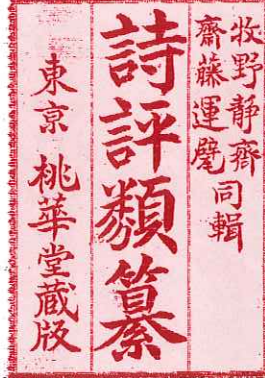 牧野静齋
齋藤運甓 同輯
詩評類纂
東京 桃華堂蔵版